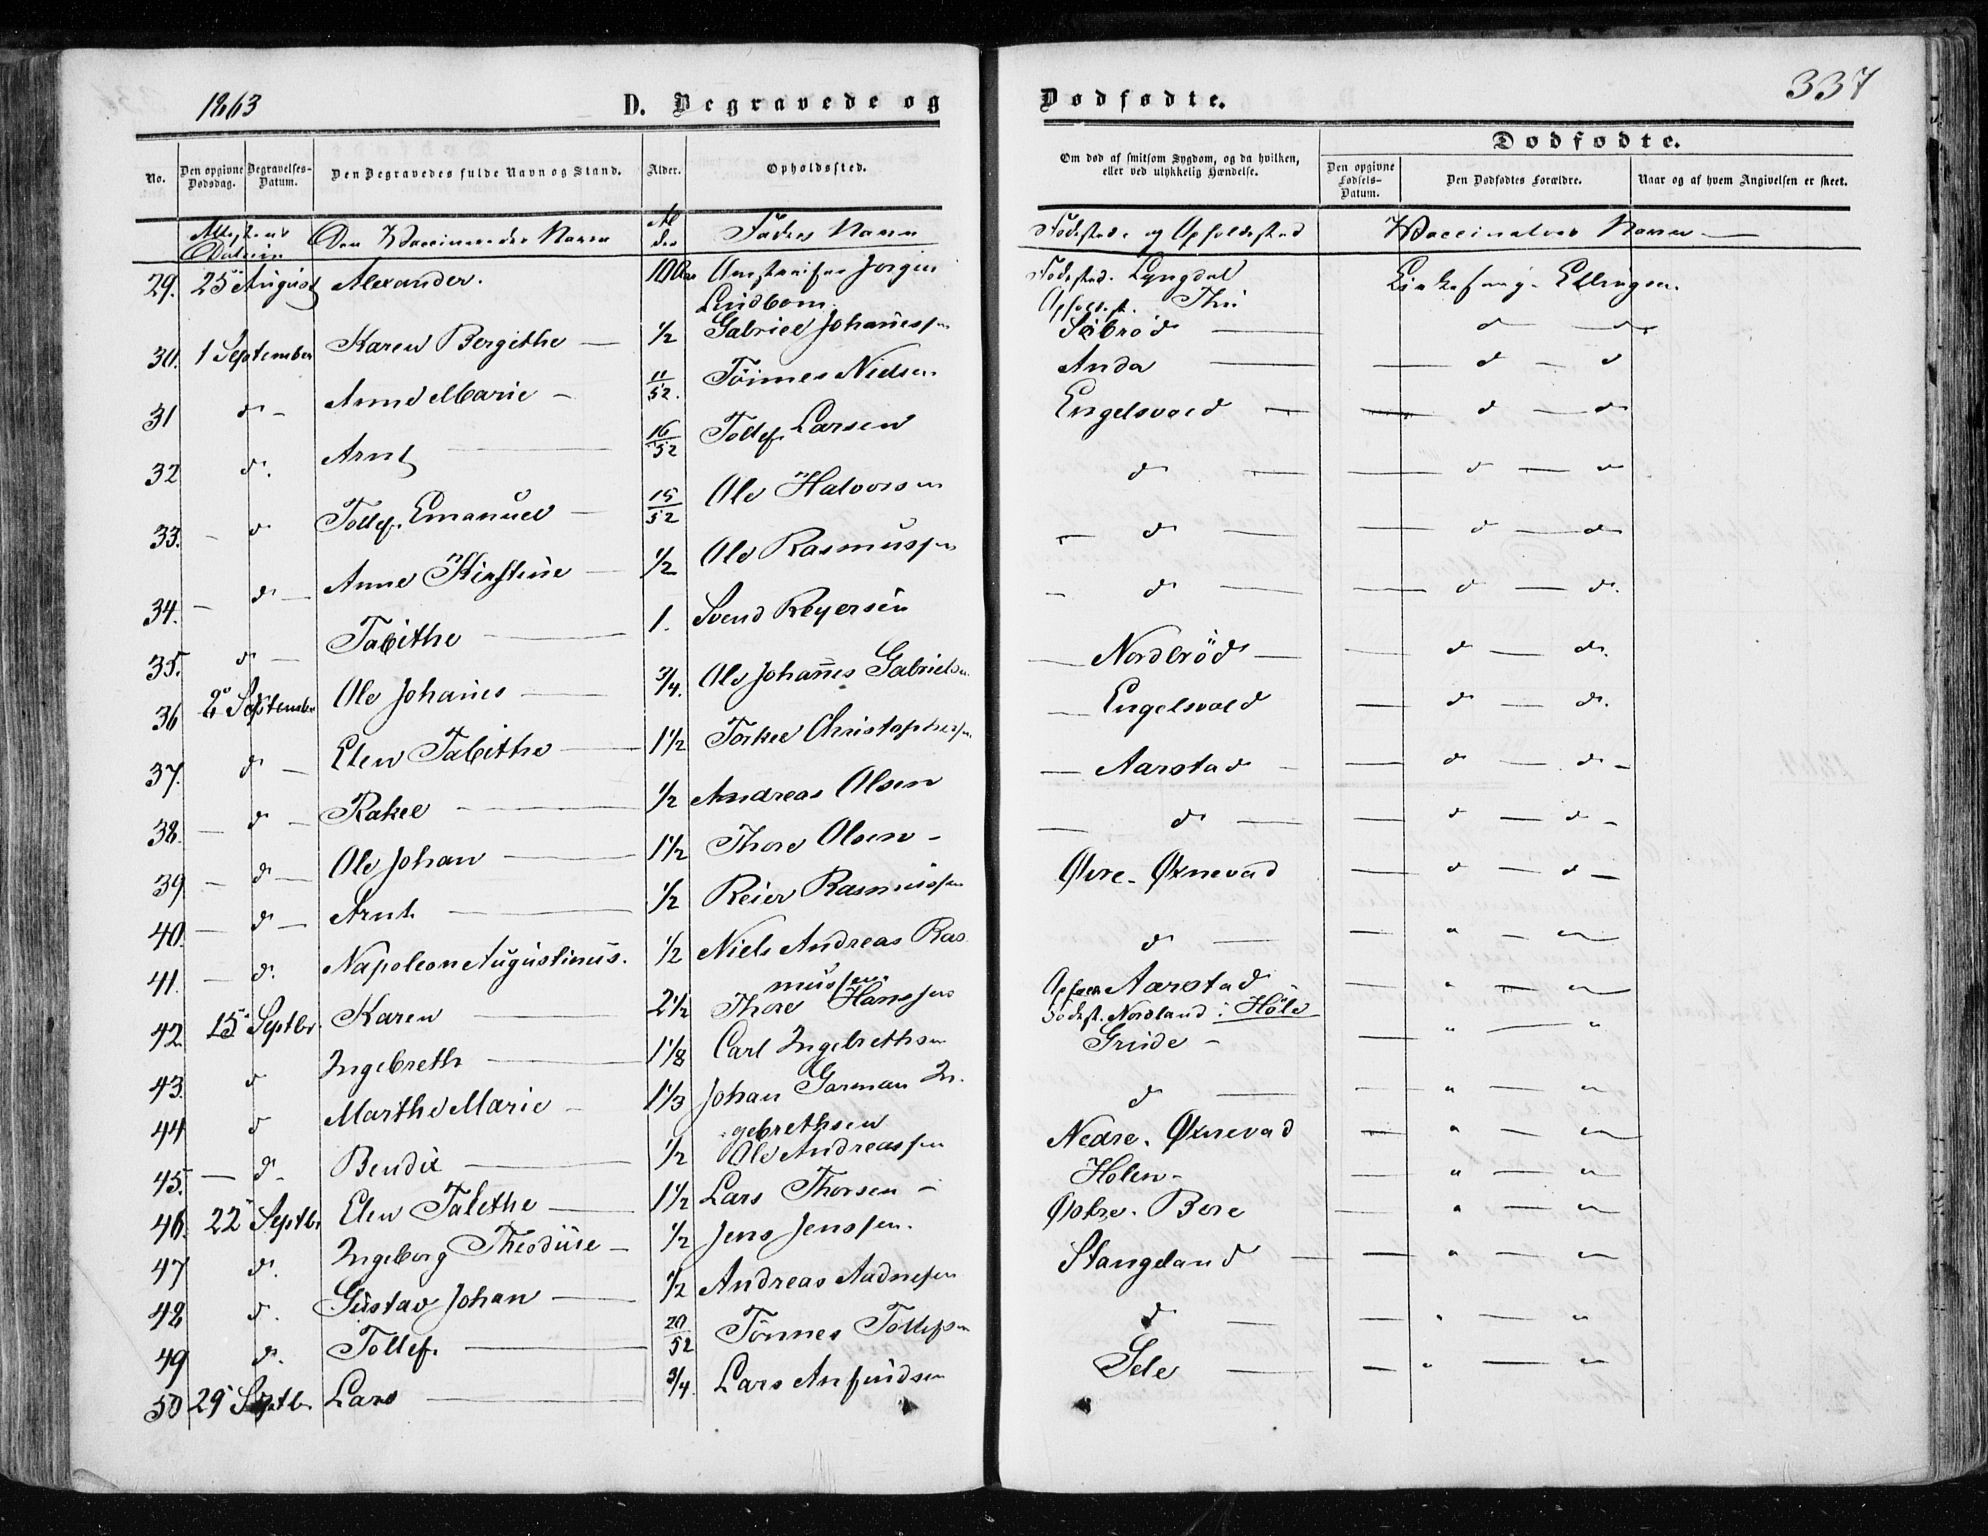 1863
D. Begravede og
Dødfødte.
337
No.
Den opgivne Dødsdag.
Begravelses-Datum.
Den Begravedes fulde Navn og Stand.
Alder.
Opholdssted.
Om død af smitsom Sygdom, og da hvilken, eller ved ulykkelig Hændelse.
Dødfødte.
Den opgivne Fødsels-Datum.
Den Dødfødtes Forældre.
Naar og af hvem Angivelsen er skeet.
Attestens Datum Den Vaccineredes Navn Alder Faders Navn Fødested og Opholdssted Vaccinateur Navn —
29. 25 August Alexander. 10 Aar Jørgen Fødested. Lyngdal Ellingsen.
Lindbom. Opholdst. Thu
30. 1 September Karen Bergithe — 1/2 Gabriel Johannessen Søbrød — d — d
31 d — Anne Marie — 11/52. Tönnes Nielsen Anda — d — d
32 d. Arnt — 16/52 Tollef Larsen Engelsvold — d — d
33. — d Tollef Emanuel — 15/52 Ole Halvorsen d — d — d
34. — d — Anne Kirstine — 1/2 Ole Rasmussen — d — d — d
35. d — Tabithe — 1. Svend Reyersen — d — d — d.
36 2 September Ole Johannes — 3/4. Ole Johannes Gabrielsen — Nordbröd — d — d.
37. d — Elen Tabithe — 1 1/2 Torkel Christophersen — Engelsvold — d — d.
38. — d — Rakel — 1/2 Andreas Olsen — Aarstad — d — d —
39 — d — Ole Johan — 1 1/2 Thore Olsen — — d — d — d —
40. — d — Arnt — 1/2 Reier Rasmussen Øvre. Øxnevad — d — d —
41. — d. Napoleon Augustinus. 1/2 Niels Andreas Ras- d — " — "
mussen
42 15 Septbr. Karen — 2 1/2 Thore Hanssen Aarstad — " — "
Fødest. Nordland i Høle
43. d Ingebreth — 1 1/8 Carl Ingebrethsen Grude — " — "
44 d Marthe Marie — 1 1/3 Johan Garman In- d — " — "
gebrethsen
45. — d — Bendix — 1/2 Ole Andreassen Nedre. Øxnevad — " — "
46. 22 Septbr Elen Tabithe — 1 1/2 Lars Thorsen — Holen — " — "
47 d. Ingeborg Theodine — 1/2 Jens Jenssen. Østre. Bore — " — "
48 d. Gustav Johan — 1/2 Andreas Aadnesen Stangeland — " — "
49 d. Tollef. — 20/52 Tönnes Tollefsen d — " — "
50 29 Septbr Lars — 3/4. Lars Anfindsen Sele — " — "